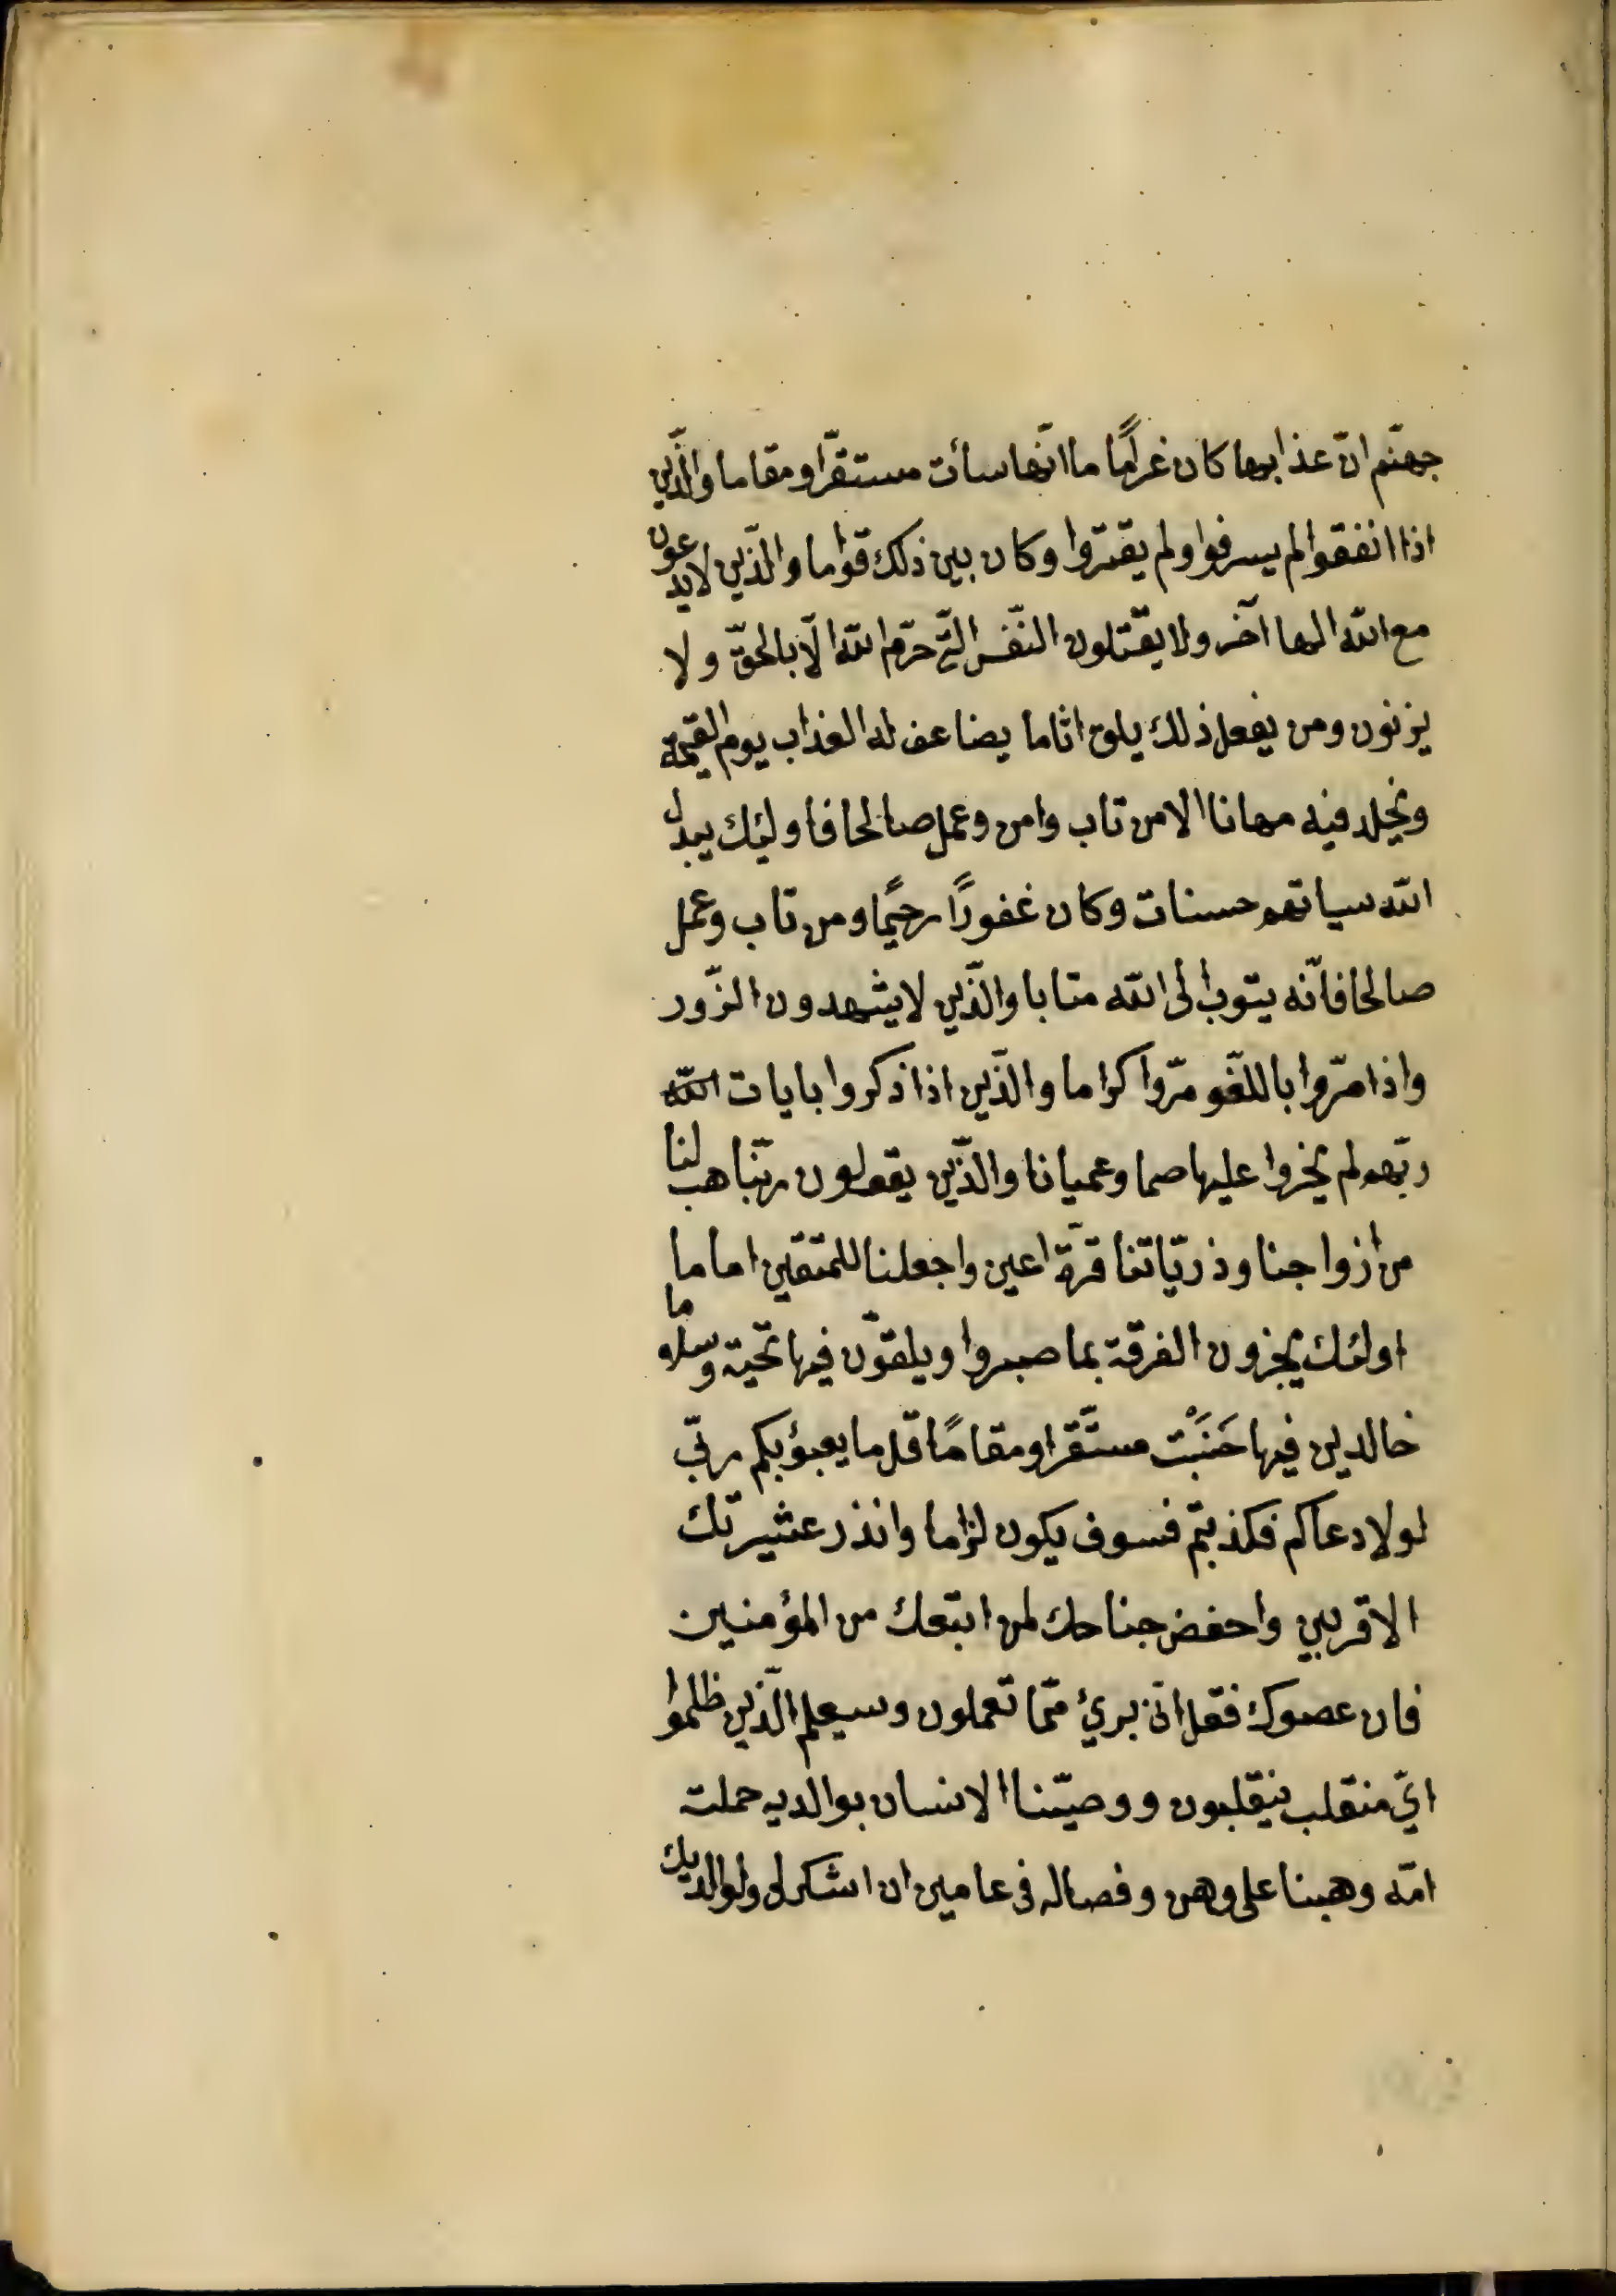 جهنّم انّ عذابها كان غرامًا ما انّها سأت مستقرّا ومقاما والّذين
اذا انفقوا لم يسرفوا ولم يقتروا وكان بين ذلك قواما والّذين لايدعون
مع الله الها آخر ولا يقتلون النّفس الّتي حرّم الله الّا بالحقّ ولا
يزنون ومن يفعل ذلك يلق اثاما يضاعف له العذاب يوم القيمة
ويخلد فيه مهانا الا من تاب وامن وعمل صالحا فاولئك يبدل
الله سياتهم حسنات وكان غفورًا رحيمًا ومن تاب وعمل
صالحا فانّه يتوب الى الله متابا والّذين لايشهدون الزّور
واذا مرّوا باللغو مرّوا كراما والّذين اذا ذكروا بايات الله
ربّهم لم يخروا عليها صما وعميانا والّذين يقولون ربّنا هب لنا
من ازواجنا وذريّاتنا قرّة اعين واجعلنا للمتقين اماما
اولئك يجزون الغرفة بما صبروا ويلقوّن فيها تحية وسلاما
خالدين فيها حَنَبْت مستَّقرا ومقامًا قل ما يعبؤبكم ربّي
لولا دعاكم فكذبتم فسوف يكون لزاما وانذر عشيرتك
الاقربين واحفض جناحك لمن ابتعك من المؤمنين
فان عصوك فقل انّي بريئ ممّا تعملون وسيعلم الّذين ظلموا
ايّ منقلب ينقلبون ووصيّنا الانسان بوالديه حملت
امّه وهبنا على وهن وفصاله فى عامين ان اشكر لى ولوالديك